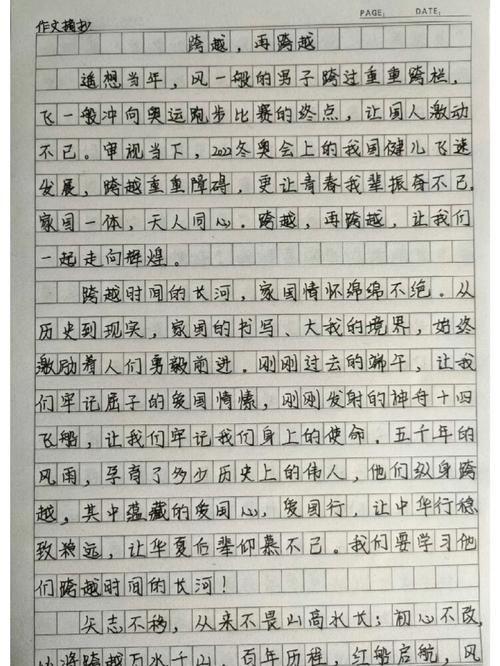 PAGE: DATE:
作文摘抄
跨越，再跨越
遥想当年，风一般的男子跨过重重跨栏，
飞一般冲向奥运跑步比赛的终点，让国人激动
不已。审视当下，2022冬奥会上的我国健儿飞速
发展，跨越重重障碍，更让青春我辈振奋不已。
家国一体，天人同心。跨越，再跨越，让我们
一起走向辉煌。
跨越时间的长河，家国情怀绵绵不绝。从
历史到现实，家国的书写、大我的境界，始终
激励着人们勇毅前进。刚刚过去的端午，让我
们牢记屈子的爱国情愫，刚刚发射的神舟十四
飞船，让我们牢记我们身上的使命。五千年的
风雨，孕育了多少历史上的伟人，他们纵身跨
越，其中蕴藏的爱国心，爱国行，让中华行稳
致狼远，让华夏后辈仰慕不已。我们要学习他
们跨越时间的长河！
矢志不移，从来不畏山高水长；初心不改，
必将跨越万水千山，百年历程，红船启航，风